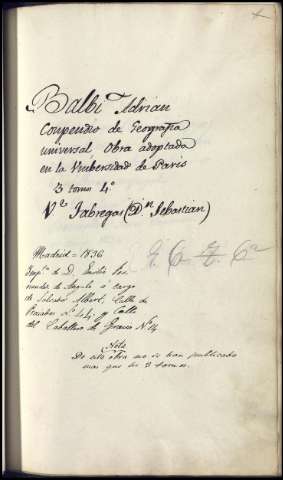 Balbi Adrian
Conpendio de Geografia
universal obra adoptada
en la Unibersidad de Paris
3 tomos 4º
Vº Fabregas (Dn. Sebastian)
Madrid = 1836
Impta. de D.
de Angulo á cargo
de Salvador Albert, Calle de
Preciados Nº 44 y Calle
del Caballero de Gracia Nº 14
Nota
De esta obra no se han publicado
mas que los 3 tomos.